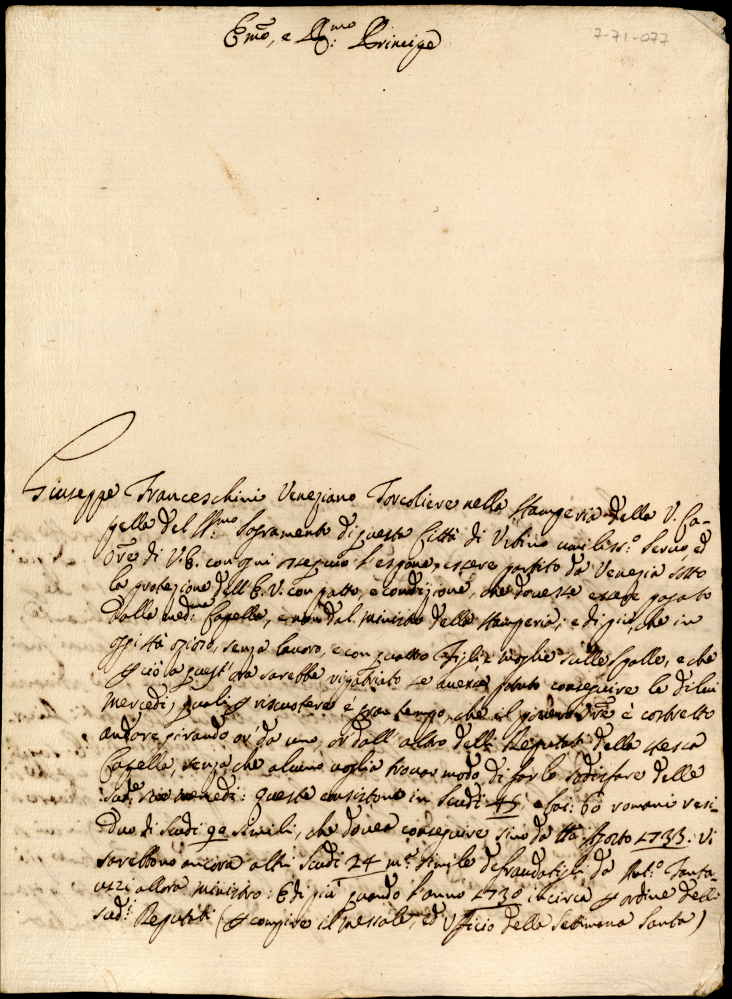 Em̃o, e R.mo Principe
7-71-077
Giuseppe Franceschini Veneziano Torcoliere nella Stamperia della V. Ca-
pella del SS.mo Sagramento di questa Città di Urbino umiliss.o Servo, ed
Ore di V. E. con ogni ossequio l'espone, essere partito da Venezia sotto
la protezione dell'E. V. con patto, e condizione, che dovesse essere pagato
dalla med.ma Capella, e non dal ministro della stamperia; e di più, che in
oggi stà ozioso, senza lavoro, e con quattro Figli e moglie sulle spalle, e che
p ciò a quest'ora sarebbe ripatriato se avesse potuto conseguire le di lui
mercedi, quali p riscuotere è tempo, che il povero Ore è costretto
andare girando or da uno, or dall'altro delli Deputati della stessa
Capella, senza che alcuno voglia trovar modo di farlo sodisfare delle
sud.e sue mercedi: queste consistono in Scudi 45, e boi: 60 romani resi-
duo di Scudi 90 simili, che dovea conseguire sino da tto Agosto 1733. Vi
sarebbono ancora altri Scudi 24 m.ta simile defraudatigli da Ant.o Fanta-
uzzi allora ministro: E di più quando l'anno 1730 in circa p ordine delli
sud.i Deputati (p compire il messale, ed Ufficio della Settimana Santa)